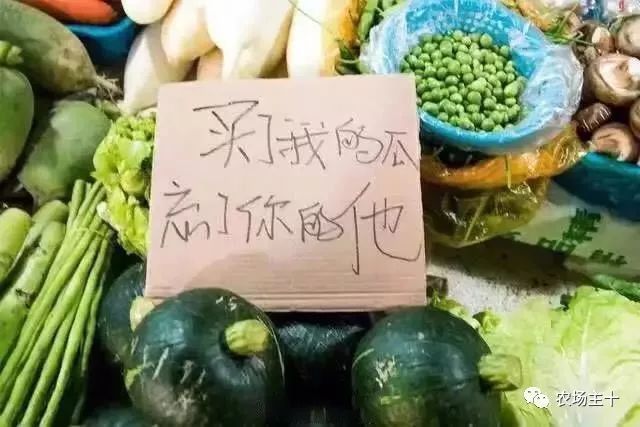 买了我的瓜
忘了你的他
农场主十